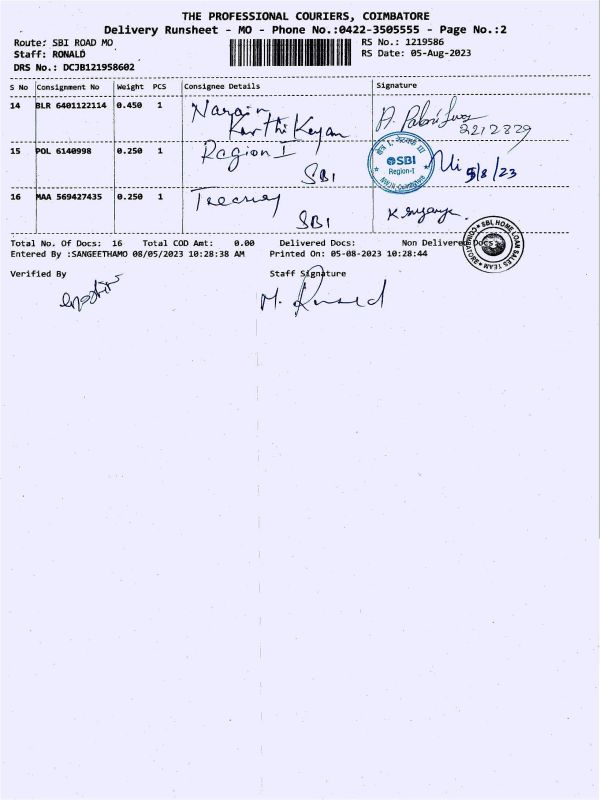 THE PROFESSIONAL COURIERS, COIMBATORE
Delivery Runsheet - MO - Phone No.:0422-3505555 - Page No.:2
Route: SBI ROAD MO RS No.: 1219586
Staff: RONALD RS Date: 05-Aug-2023
DRS No.: DCJB121958602
S No Consignment No Weight PCS Consignee Details Signature
14 BLR 6401122114 0.450 1 Narain
Karthi Keyan
2212829
15 POL 6140998 0.250 1 Ragion I
SBI
SBI
Region-I
5/8/23
16 MAA 569427435 0.250 1
SBI
SBI, HOME LOAN SALES TEAM COIMBATORE
Total No. Of Docs: 16 Total COD Amt: 0.00 Delivered Docs: Non Delivered Docs:
Entered By :SANGEETHAMO 08/05/2023 10:28:38 AM Printed On: 05-08-2023 10:28:44
Verified By Staff Signature